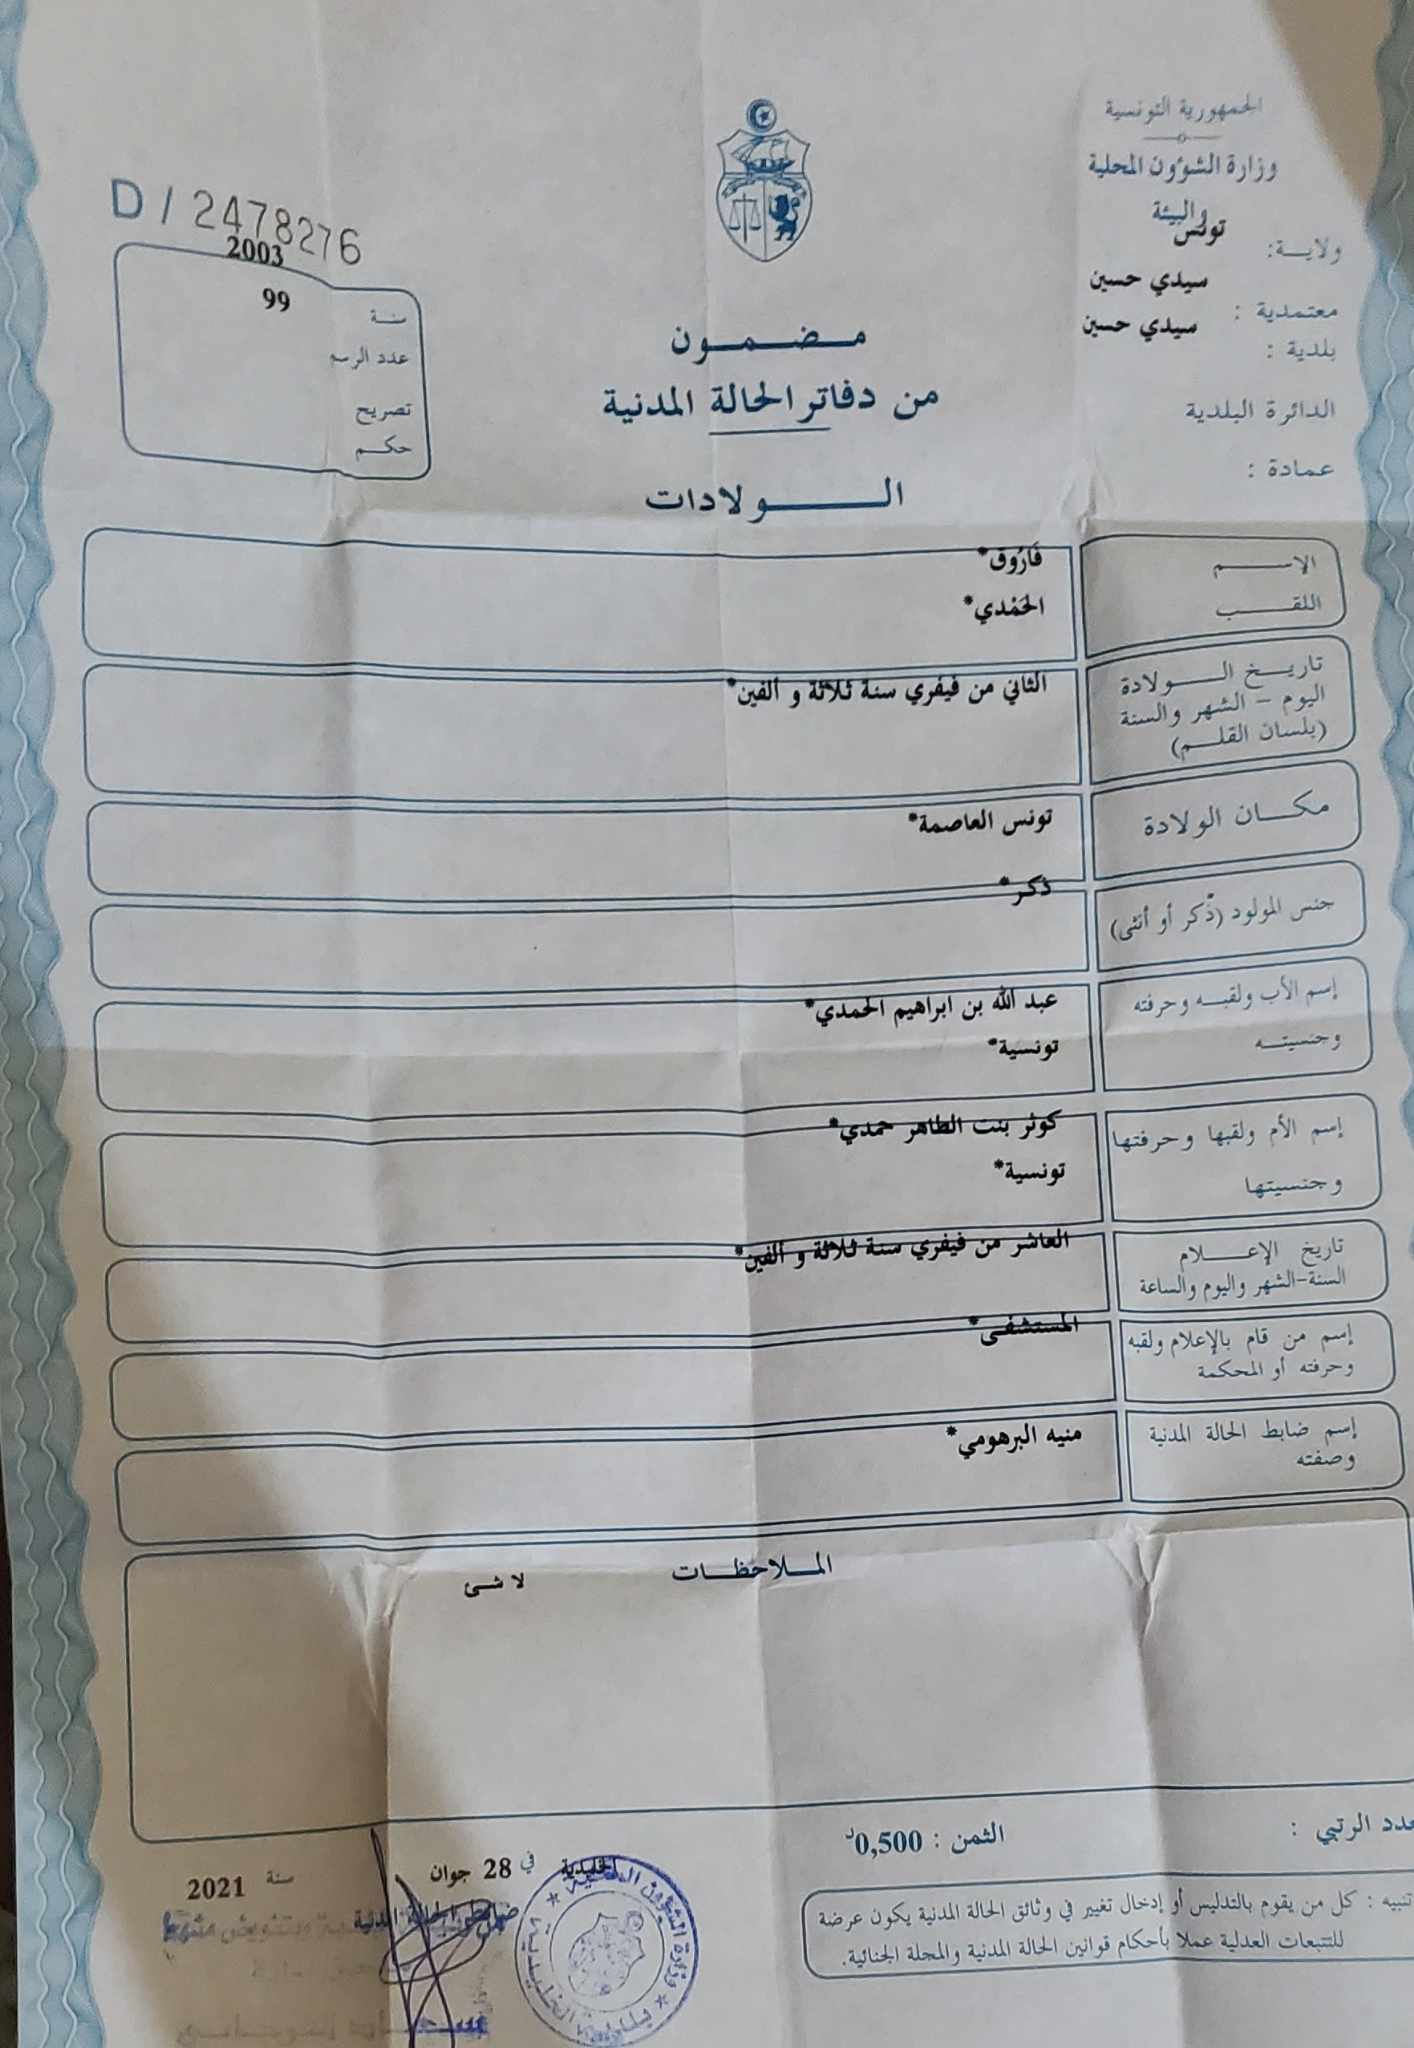 الجمهورية التونسية
وزارة الشؤون المحلية
والبيئة
ولاية: تونس
معتمدية : سيدي حسين
بلدية : سيدي حسين
الدائرة البلدية
عمادة :
D / 2478276
سنة 2003
عدد الرسم 99
تصريح
حكم
مضمون
من دفاتر الحالة المدنية
الولادات
الاسم فَارُوق*
اللقب الحَمْدي*
تاريخ الولادة الثاني من فيفري سنة ثلاثة و ألفين*
اليوم – الشهر والسنة
(بلسان القلم)
مكان الولادة تونس العاصمة*
جنس المولود (ذكر أو أنثى) ذكر*
إسم الأب ولقبه وحرفته عبد الله بن ابراهيم الحمدي*
وجنسيته تونسية*
إسم الأم ولقبها وحرفتها كوثر بنت الطاهر حمدي*
وجنسيتها تونسية*
تاريخ الإعلام العاشر من فيفري سنة ثلاثة و ألفين*
السنة-الشهر واليوم والساعة
إسم من قام بالإعلام ولقبه المستشفى*
وحرفته أو المحكمة
إسم ضابط الحالة المدنية منيه البرهومي*
وصفته
الملاحظات
لا شئ
عدد الرتبي :
الثمن : 0,500د
تنبيه : كل من يقوم بالتدليس أو إدخال تغيير في وثائق الحالة المدنية يكون عرضة
للتتبعات العدلية عملا بأحكام قوانين الحالة المدنية والمجلة الجنائية.
الخليدية في 28 جوان سنة 2021
ضابط الحالة المدنية
وزارة الشؤون المحلية
بلدية الخليدية